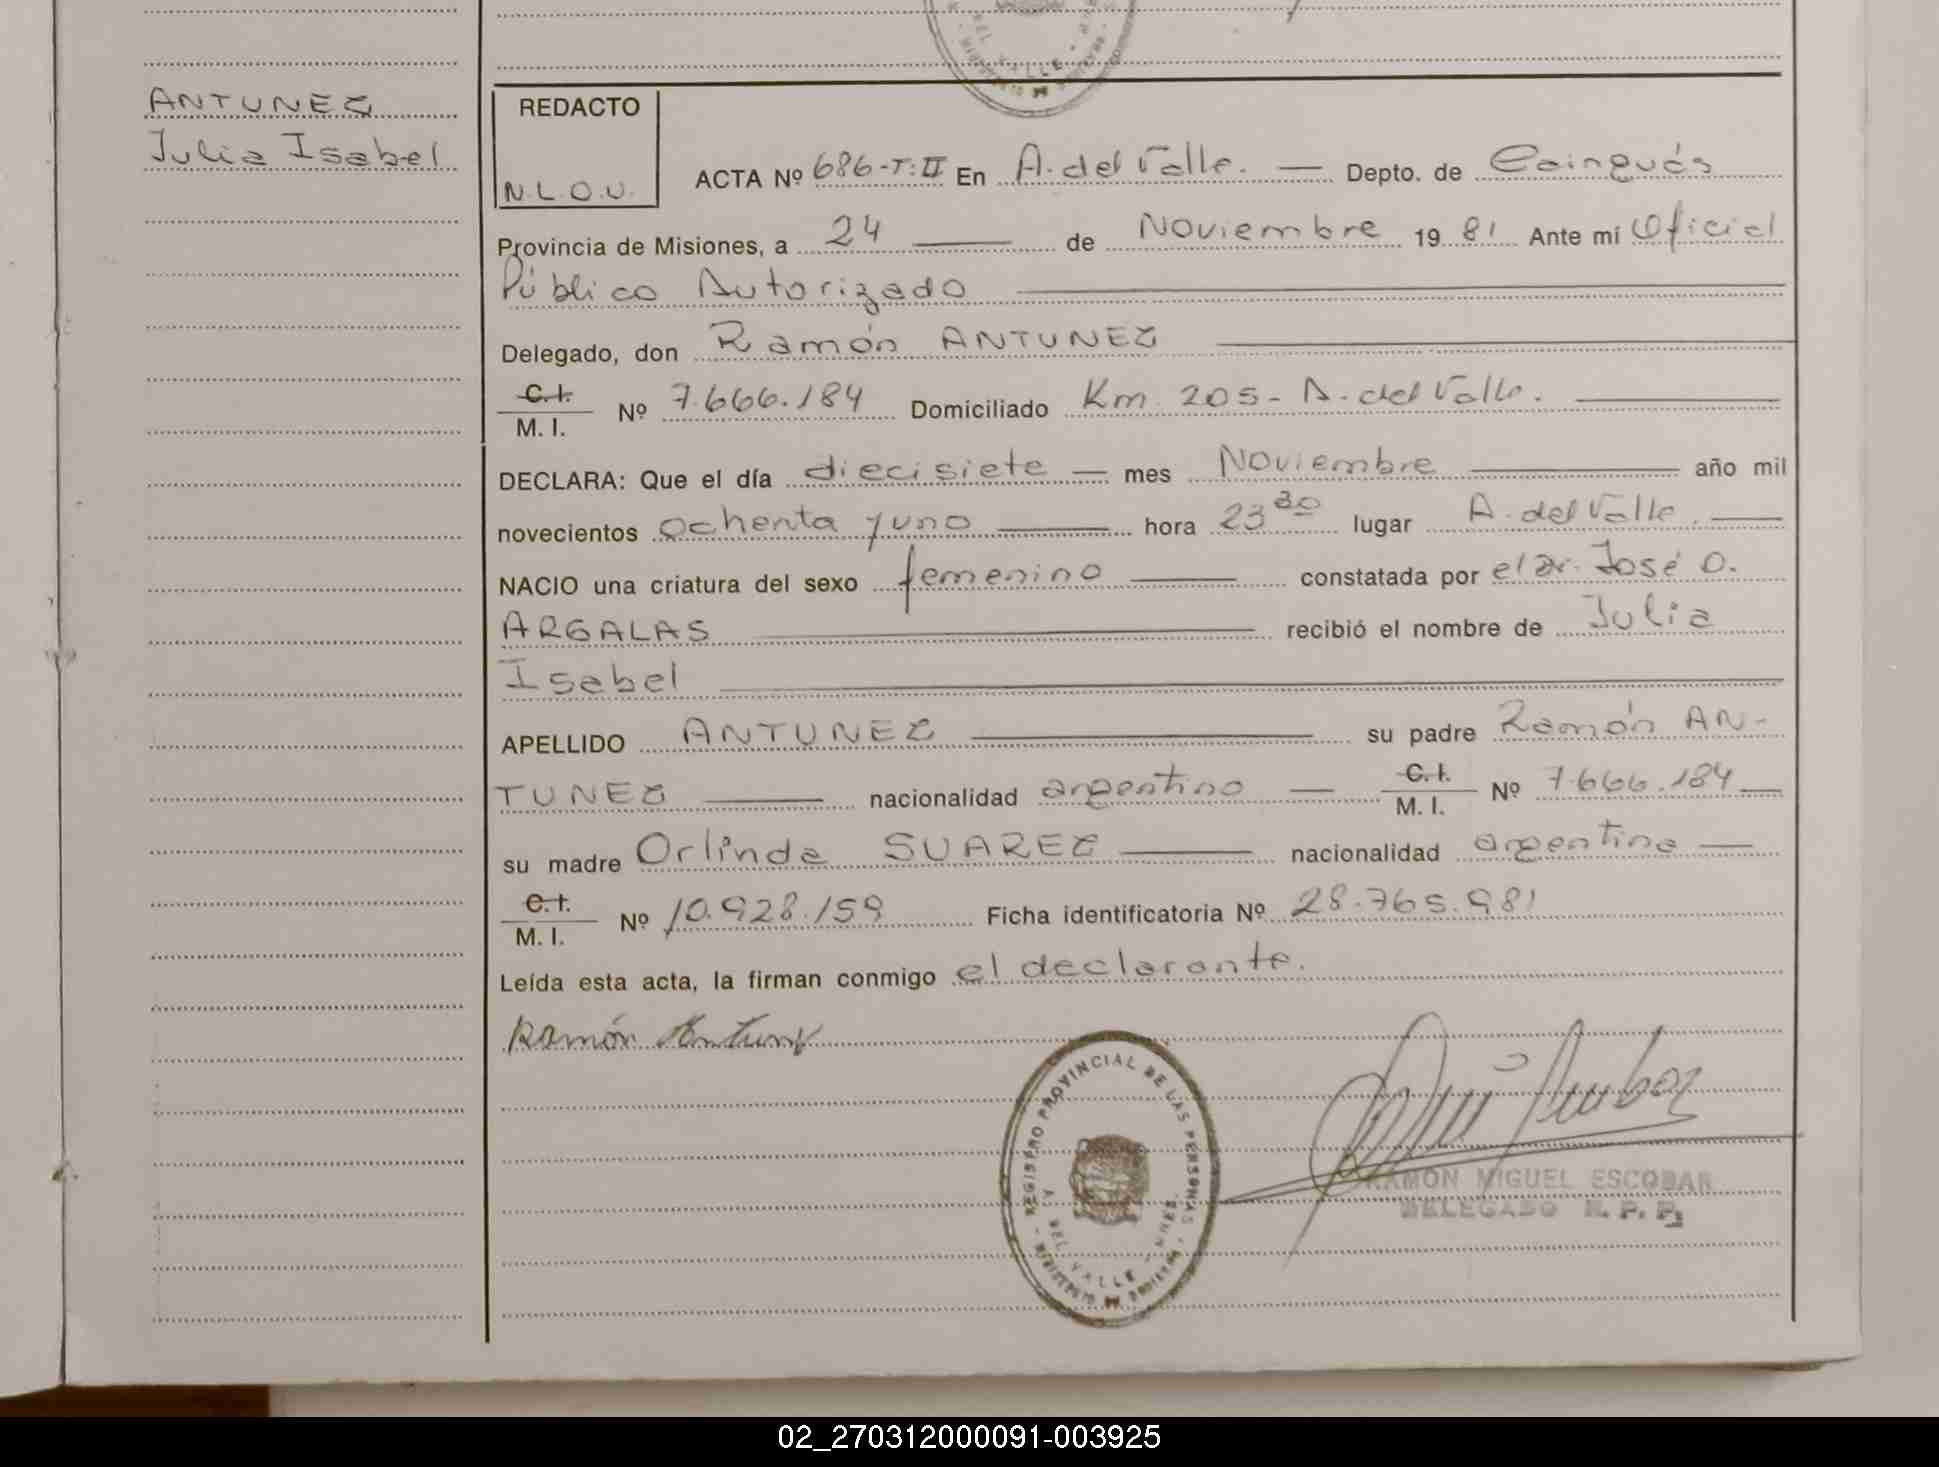 ANTUNEZ
Julia Isabel
REDACTO
N.L.O.U.
ACTA Nº 686-T:II En A. del Valle. — Depto. de Cainguás
Provincia de Misiones, a 24 — de Noviembre 19 81 Ante mí Oficial
Público Autorizado
Delegado, don Ramón ANTUNEZ
C.I.
M. I. Nº 7.666.184 Domiciliado Km 205- A. del Valle.
DECLARA: Que el día diecisiete — mes Noviembre — año mil
novecientos ochenta y uno — hora 23 30 lugar A. del Valle. —
NACIO una criatura del sexo femenino — constatada por el Dr. José O.
ARGALAS — recibió el nombre de Julia
Isabel
APELLIDO ANTUNEZ — su padre Ramón AN-
TUNEZ — nacionalidad argentino — C.I. M. I. Nº 7.666.184 —
su madre Orlinda SUAREZ — nacionalidad argentina —
C.I.
M. I. Nº 10.928.159 Ficha identificatoria Nº 28.765.981
Leída esta acta, la firman conmigo el declarante.
Ramón Antunez
REGISTRO PROVINCIAL DE LAS PERSONAS
A. DEL VALLE - MNES.
RAMON MIGUEL ESCOBAR
DELEGADO R. P. P.
02_270312000091-003925